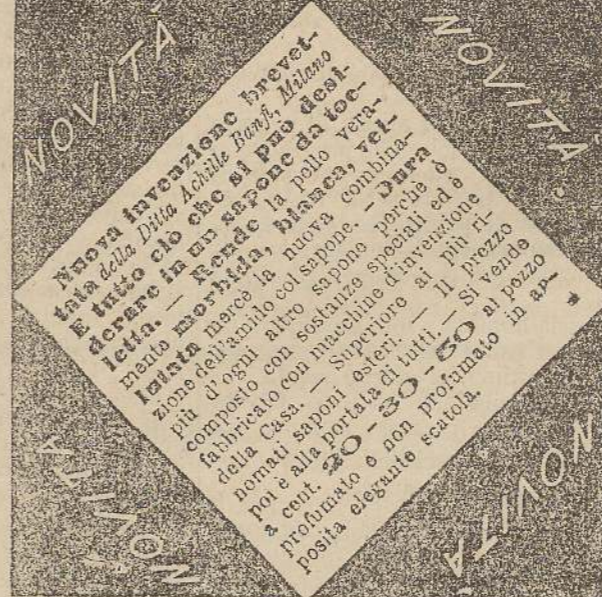 NOVITÁ
NOVITÁ
Nuova invenzione brevet-
tata della Ditta Achille Banfi, Milano
E tutto ciò che si può desi-
derare in un sapone da toe-
letta. — Rende la pelle vera-
mente morbida, bianca, vel-
lutata mercè la nuova combina-
zione dell'amido col sapone. — Dura
più d'ogni altro sapone perchè è
composto con sostanze speciali ed è
fabbricato con macchine d'invenzione
della Casa. — Superiore ai più ri-
nomati saponi esteri. — Il prezzo
poi è alla portata di tutti. — Si vende
a cent. 20-30-50 al pezzo
profumato e non profumato in ap-
posita elegante scatola.
NOVITÁ
NOVITÁ